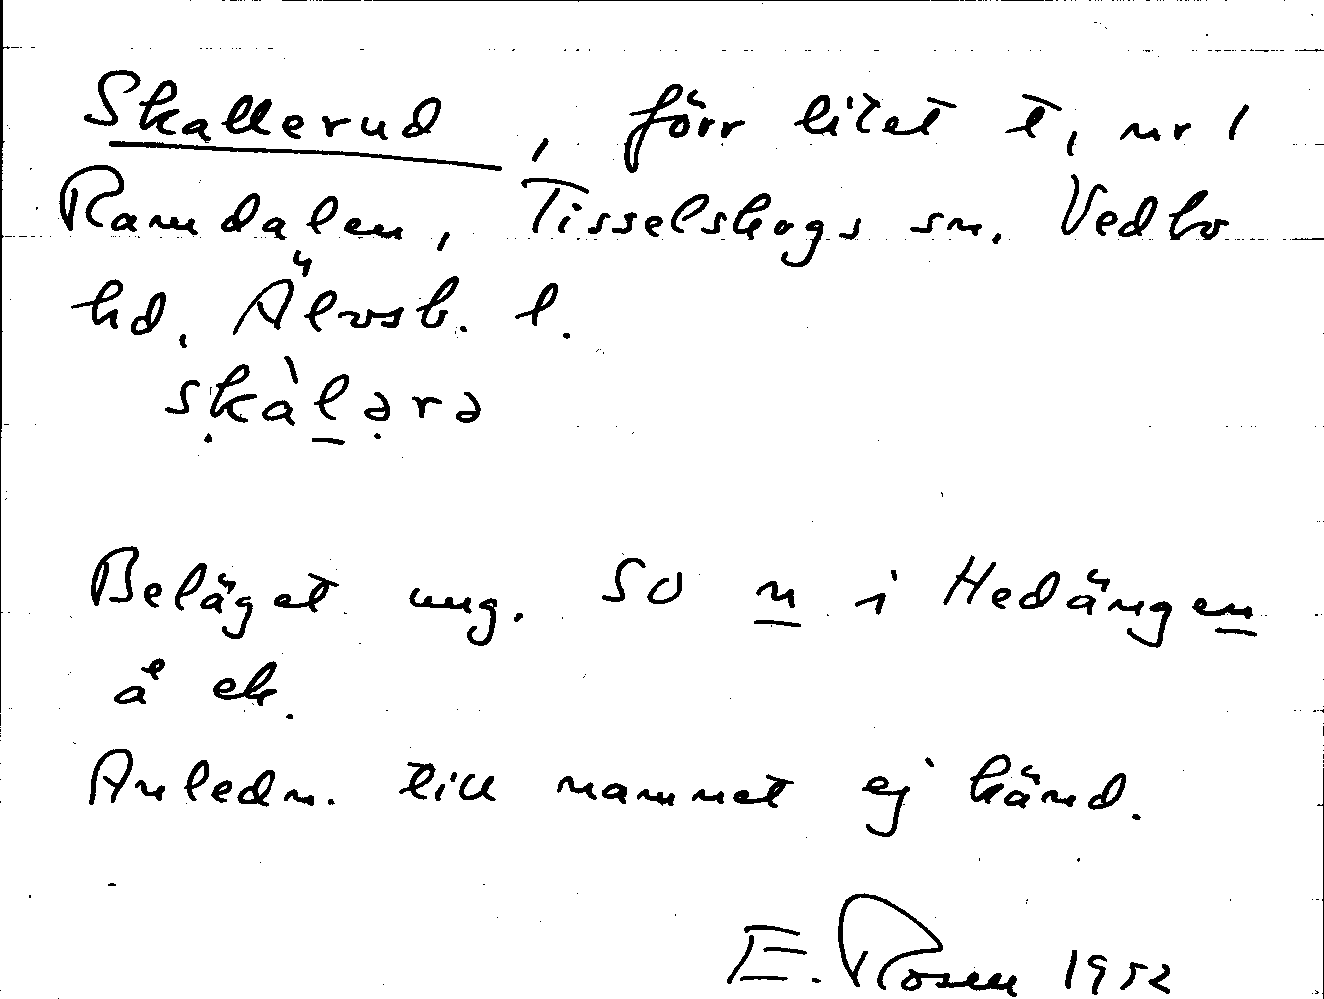 Skallerud, förr litet t, nr 1
Ramdalen, Tisselskogs sn. Vedbo
hd. Älvsb. l.
skàlərə
Beläget ung. SO n i Hedängen
å ek.
Anledn. till namnet ej känd.
E. Rosen 1952